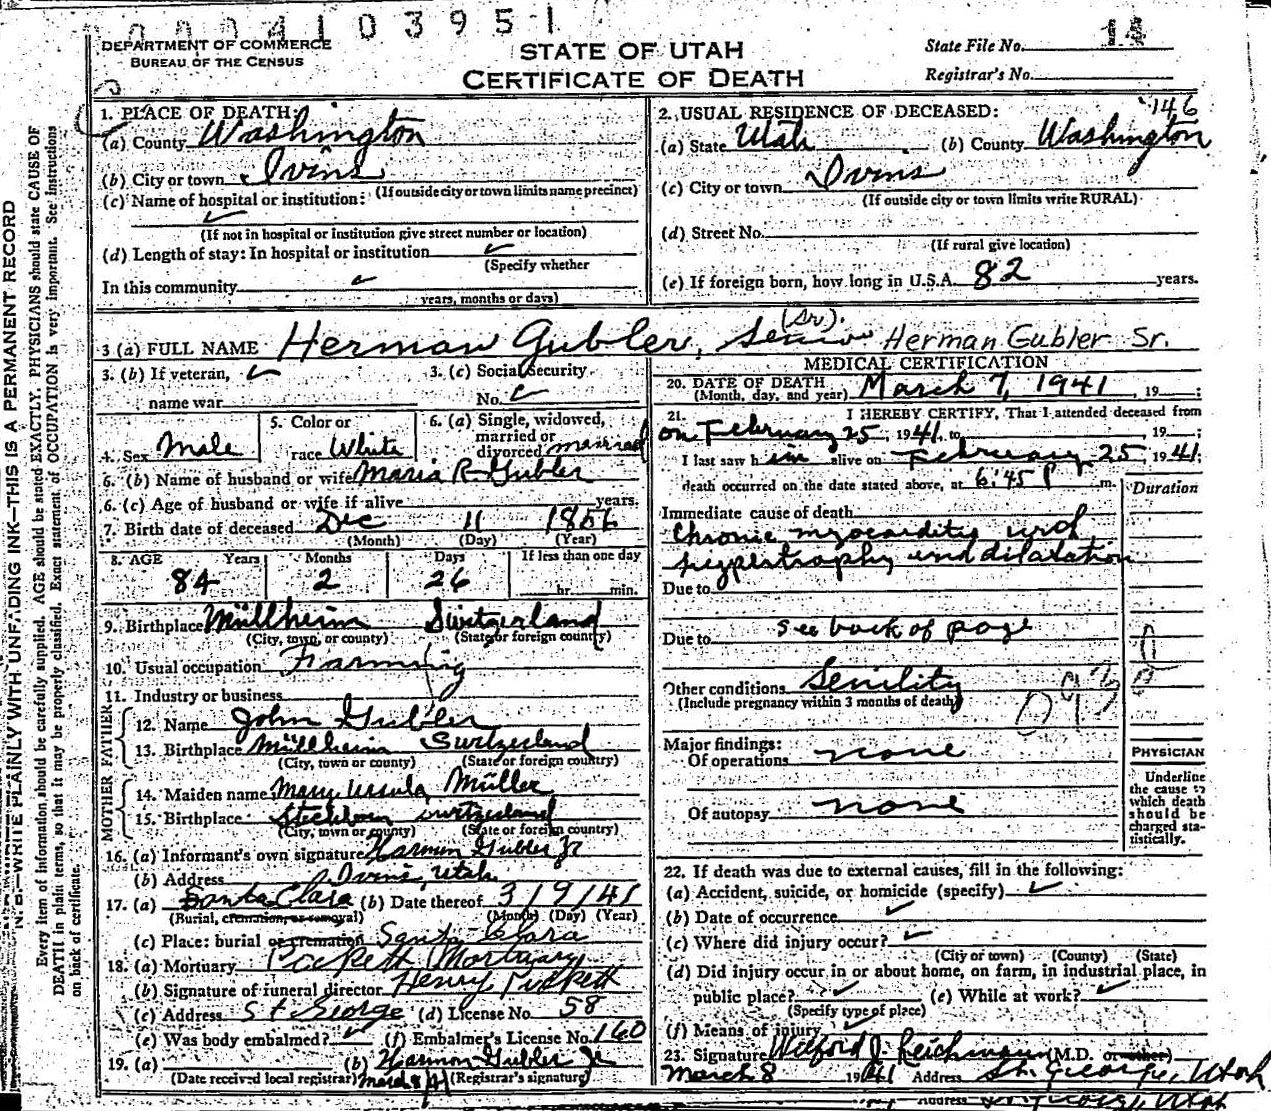 0004103951
DEPARTMENT OF COMMERCE
BUREAU OF THE CENSUS
STATE OF UTAH
CERTIFICATE OF DEATH
State File No. 14
Registrar's No.
146
1. PLACE OF DEATH:
(a) County Washington
(b) City or town Ivins
(If outside city or town limits name precinct)
(c) Name of hospital or institution:
✓
(If not in hospital or institution give street number or location)
(d) Length of stay: In hospital or institution ✓
(Specify whether
In this community ✓
years, months or days)
2. USUAL RESIDENCE OF DECEASED:
(a) State Utah (b) County Washington
(c) City or town Ivins
(If outside city or town limits write RURAL)
(d) Street No.
(If rural give location)
(e) If foreign born, how long in U.S.A. 82 years.
3 (a) FULL NAME Herman Gubler, Senior (Sr). Herman Gubler Sr.
3. (b) If veteran, ✓
name war
3. (c) Social Security
No. ✓
4. Sex Male
5. Color or
race White
6. (a) Single, widowed,
married or
divorced married
6. (b) Name of husband or wife Maria R Gubler
6. (c) Age of husband or wife if alive years.
7. Birth date of deceased Dec 11 1856
(Month) (Day) (Year)
8. AGE Years Months Days If less than one day
84 2 26 hr. min.
9. Birthplace Müllheim Switzerland
(City, town, or county) (State or foreign country)
10. Usual occupation Farming
11. Industry or business
FATHER
12. Name John Gubler
13. Birthplace Müllheim Switzerland
(City, town or county) (State or foreign country)
MOTHER
14. Maiden name Mary Ursula Müller
15. Birthplace Switzerland
(City, town or county) (State or foreign country)
16. (a) Informant's own signature Harmon Gubler Jr
(b) Address Ivins, Utah
17. (a) Santa Clara (b) Date thereof 3/9/41
(Burial, cremation, or removal) (Month) (Day) (Year)
(c) Place: burial or cremation Santa Clara
18. (a) Mortuary Pickett Mortuary
(b) Signature of funeral director Henry Pickett
(c) Address St George (d) License No. 58
(e) Was body embalmed? ✓ (f) Embalmer's License No. 160
19. (a) March 8/41 (b) Harmon Gubler Jr
(Date received local registrar) (Registrar's signature)
MEDICAL CERTIFICATION
20. DATE OF DEATH March 7, 1941, 19 ;
(Month, day, and year)
21. I HEREBY CERTIFY, That I attended deceased from
on February 25, 1941, to 19 ;
I last saw him alive on February 25 1941;
death occurred on the date stated above, at 6:45 P m.
Duration
Immediate cause of death
Chronic myocarditis with
hypertrophy and dilatation
Due to
Due to see back of page
Other conditions Senility
(Include pregnancy within 3 months of death)
Major findings:
Of operations none
Of autopsy none
PHYSICIAN
Underline
the cause to
which death
should be
charged sta-
tistically.
22. If death was due to external causes, fill in the following:
(a) Accident, suicide, or homicide (specify) ✓
(b) Date of occurrence ✓
(c) Where did injury occur? ✓
(City or town) (County) (State)
(d) Did injury occur in or about home, on farm, in industrial place, in
public place? ✓ (e) While at work? ✓
(Specify type of place)
(f) Means of injury ✓
23. Signature Wilford J Reichmann (M.D. or other)
March 8 1941 Address St. George, Utah
Address St. George, Utah
N. B.—WRITE PLAINLY WITH UNFADING INK—THIS IS A PERMANENT RECORD
Every item of information should be carefully supplied. AGE should be stated EXACTLY. PHYSICIANS should state CAUSE OF
DEATH in plain terms, so that it may be properly classified. Exact statement of OCCUPATION is very important. See instructions
on back of certificate.